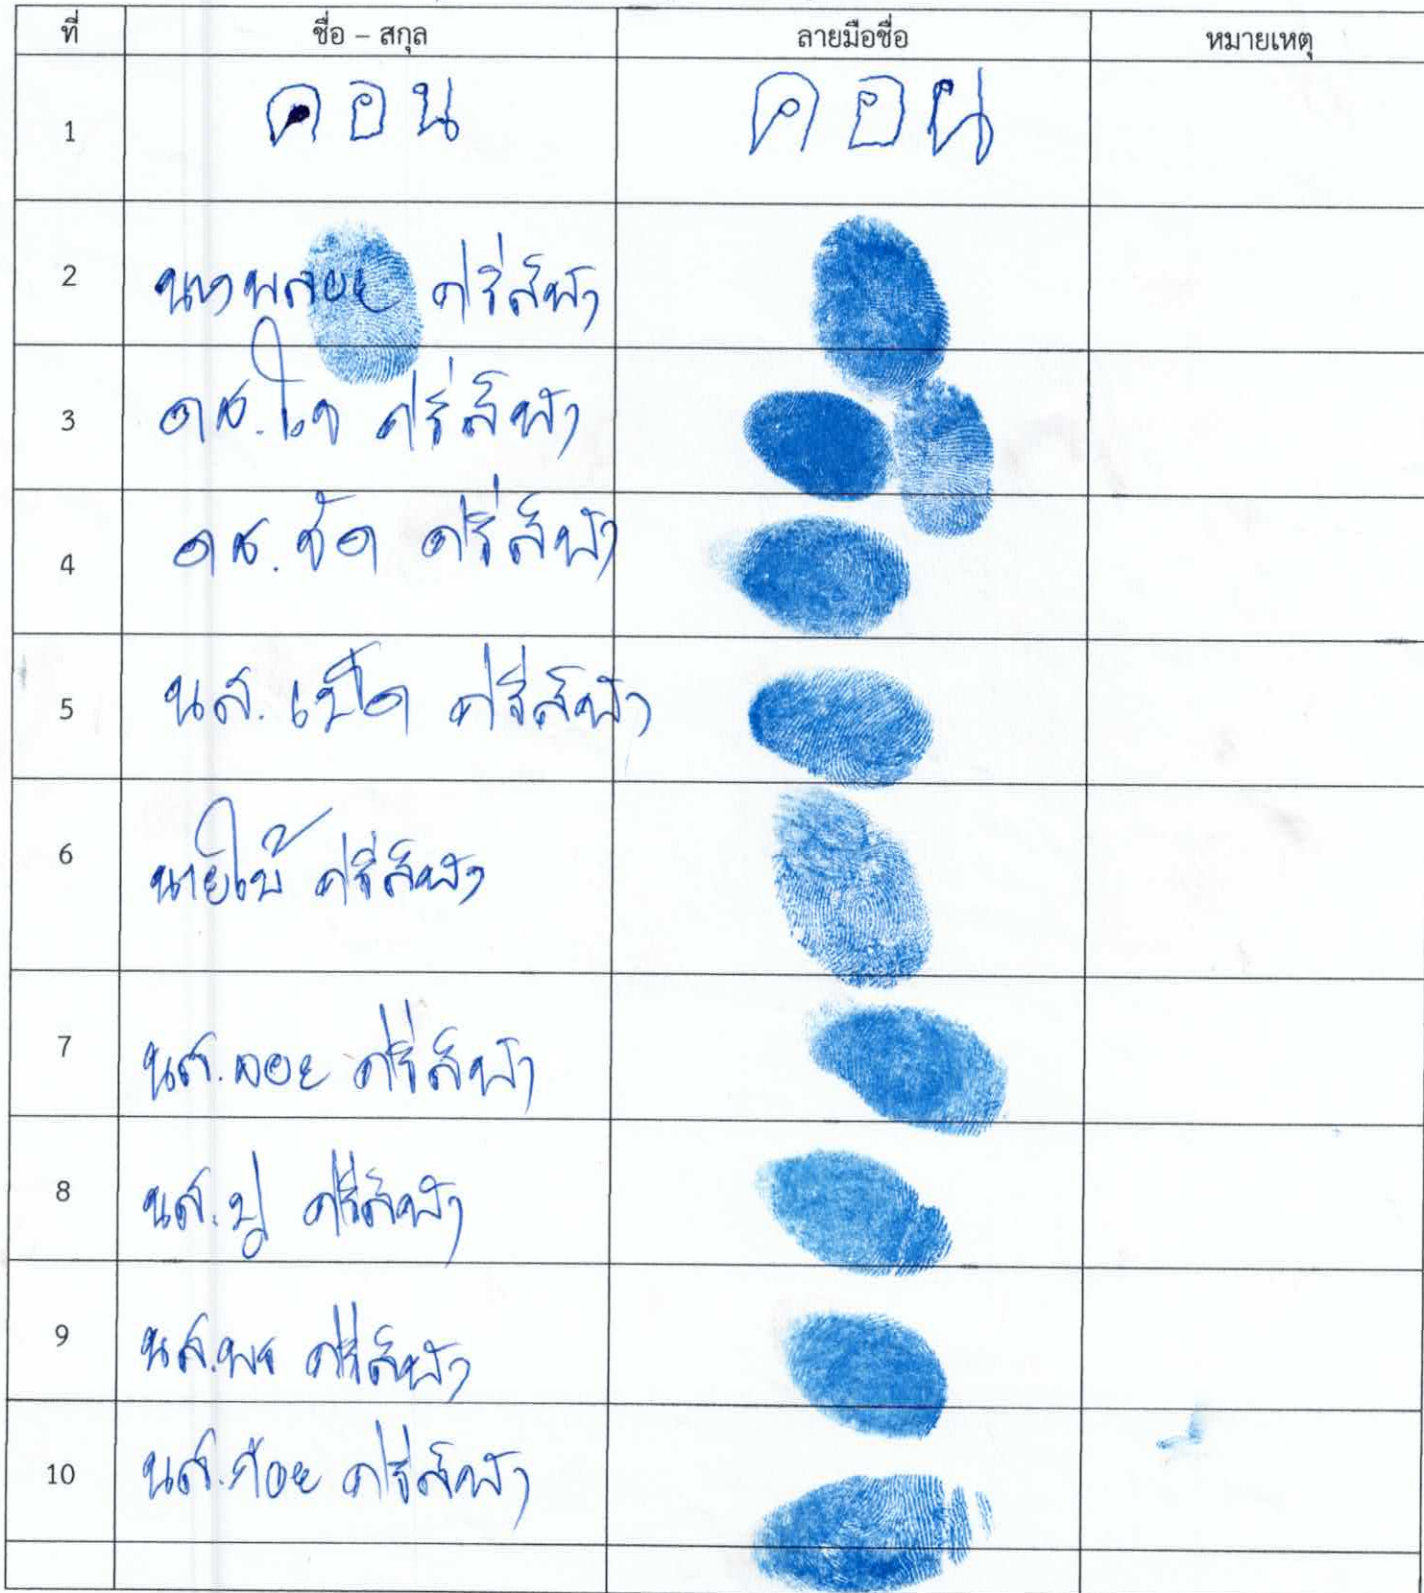 ที่ ชื่อ – สกุล ลายมือชื่อ หมายเหตุ
1 คอน คอน
2 นางพลอย ศรีสิฟ้า
3 ดช.ใจ ศรีสิฟ้า
4 ดช. ชัด ศรีสิฟ้า
5 นส. เปิ้ด ศรีสิฟ้า
6 นายใบ้ ศรีสิฟ้า
7 นส.จอย ศรีสิฟ้า
8 นส.ปู ศรีสิฟ้า
9 นส.พร ศรีสิฟ้า
10 นส.ก้อย ศรีสิฟ้า